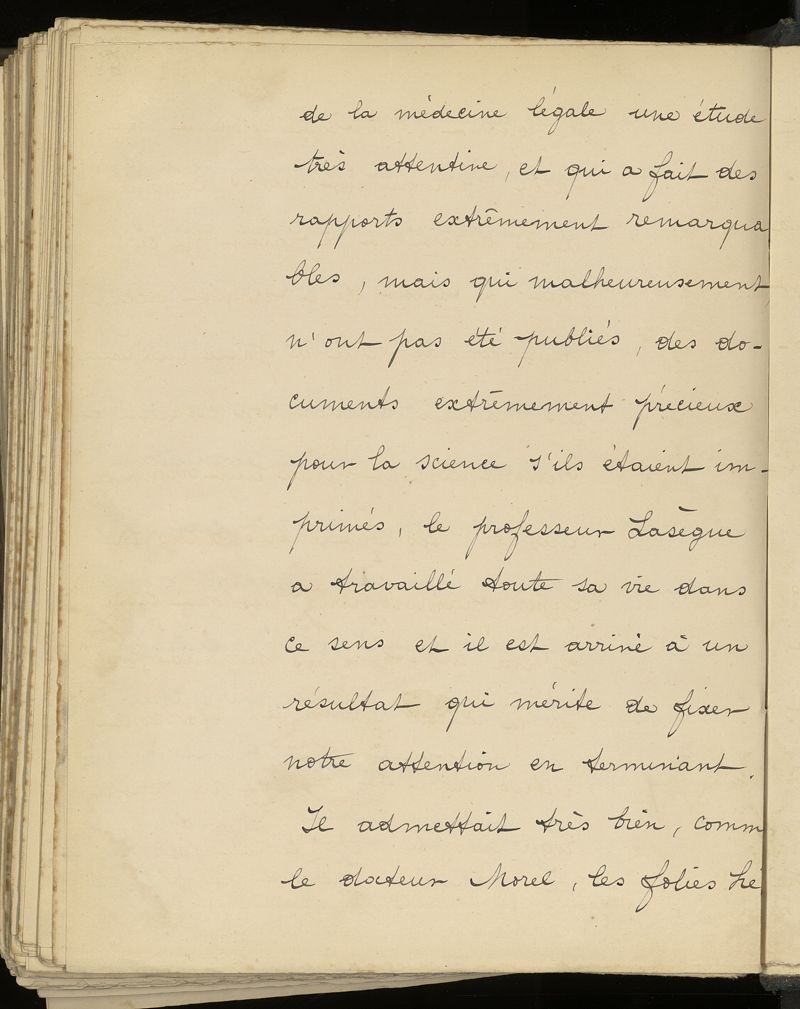 de la médecine légale une étude
très attentive, et qui a fait des
rapports extrêmement remarqua
bles, mais qui malheureusement,
n'ont pas été publiés, des do-
cuments extrêmement précieux
pour la science s'ils étaient im-
primés, le professeur Lasègue
a travaillé toute sa vie dans
ce sens et il est arrivé à un
résultat qui mérite de fixer
notre attention en terminant.
Il admettait très bien, comm
le docteur Morel, les folies hé